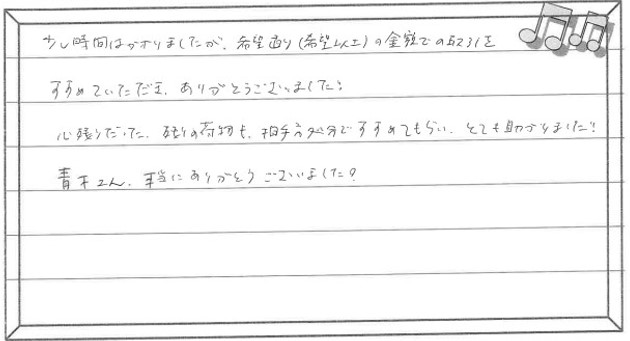 少し時間はかかりましたが、希望通り(希望以上)の金額での取引を
すすめていただき、ありがとうございました!
心残りだった、残りの荷物も、相手方処分ですすめてもらい、とても助かりました!
青木さん、本当にありがとうございました!